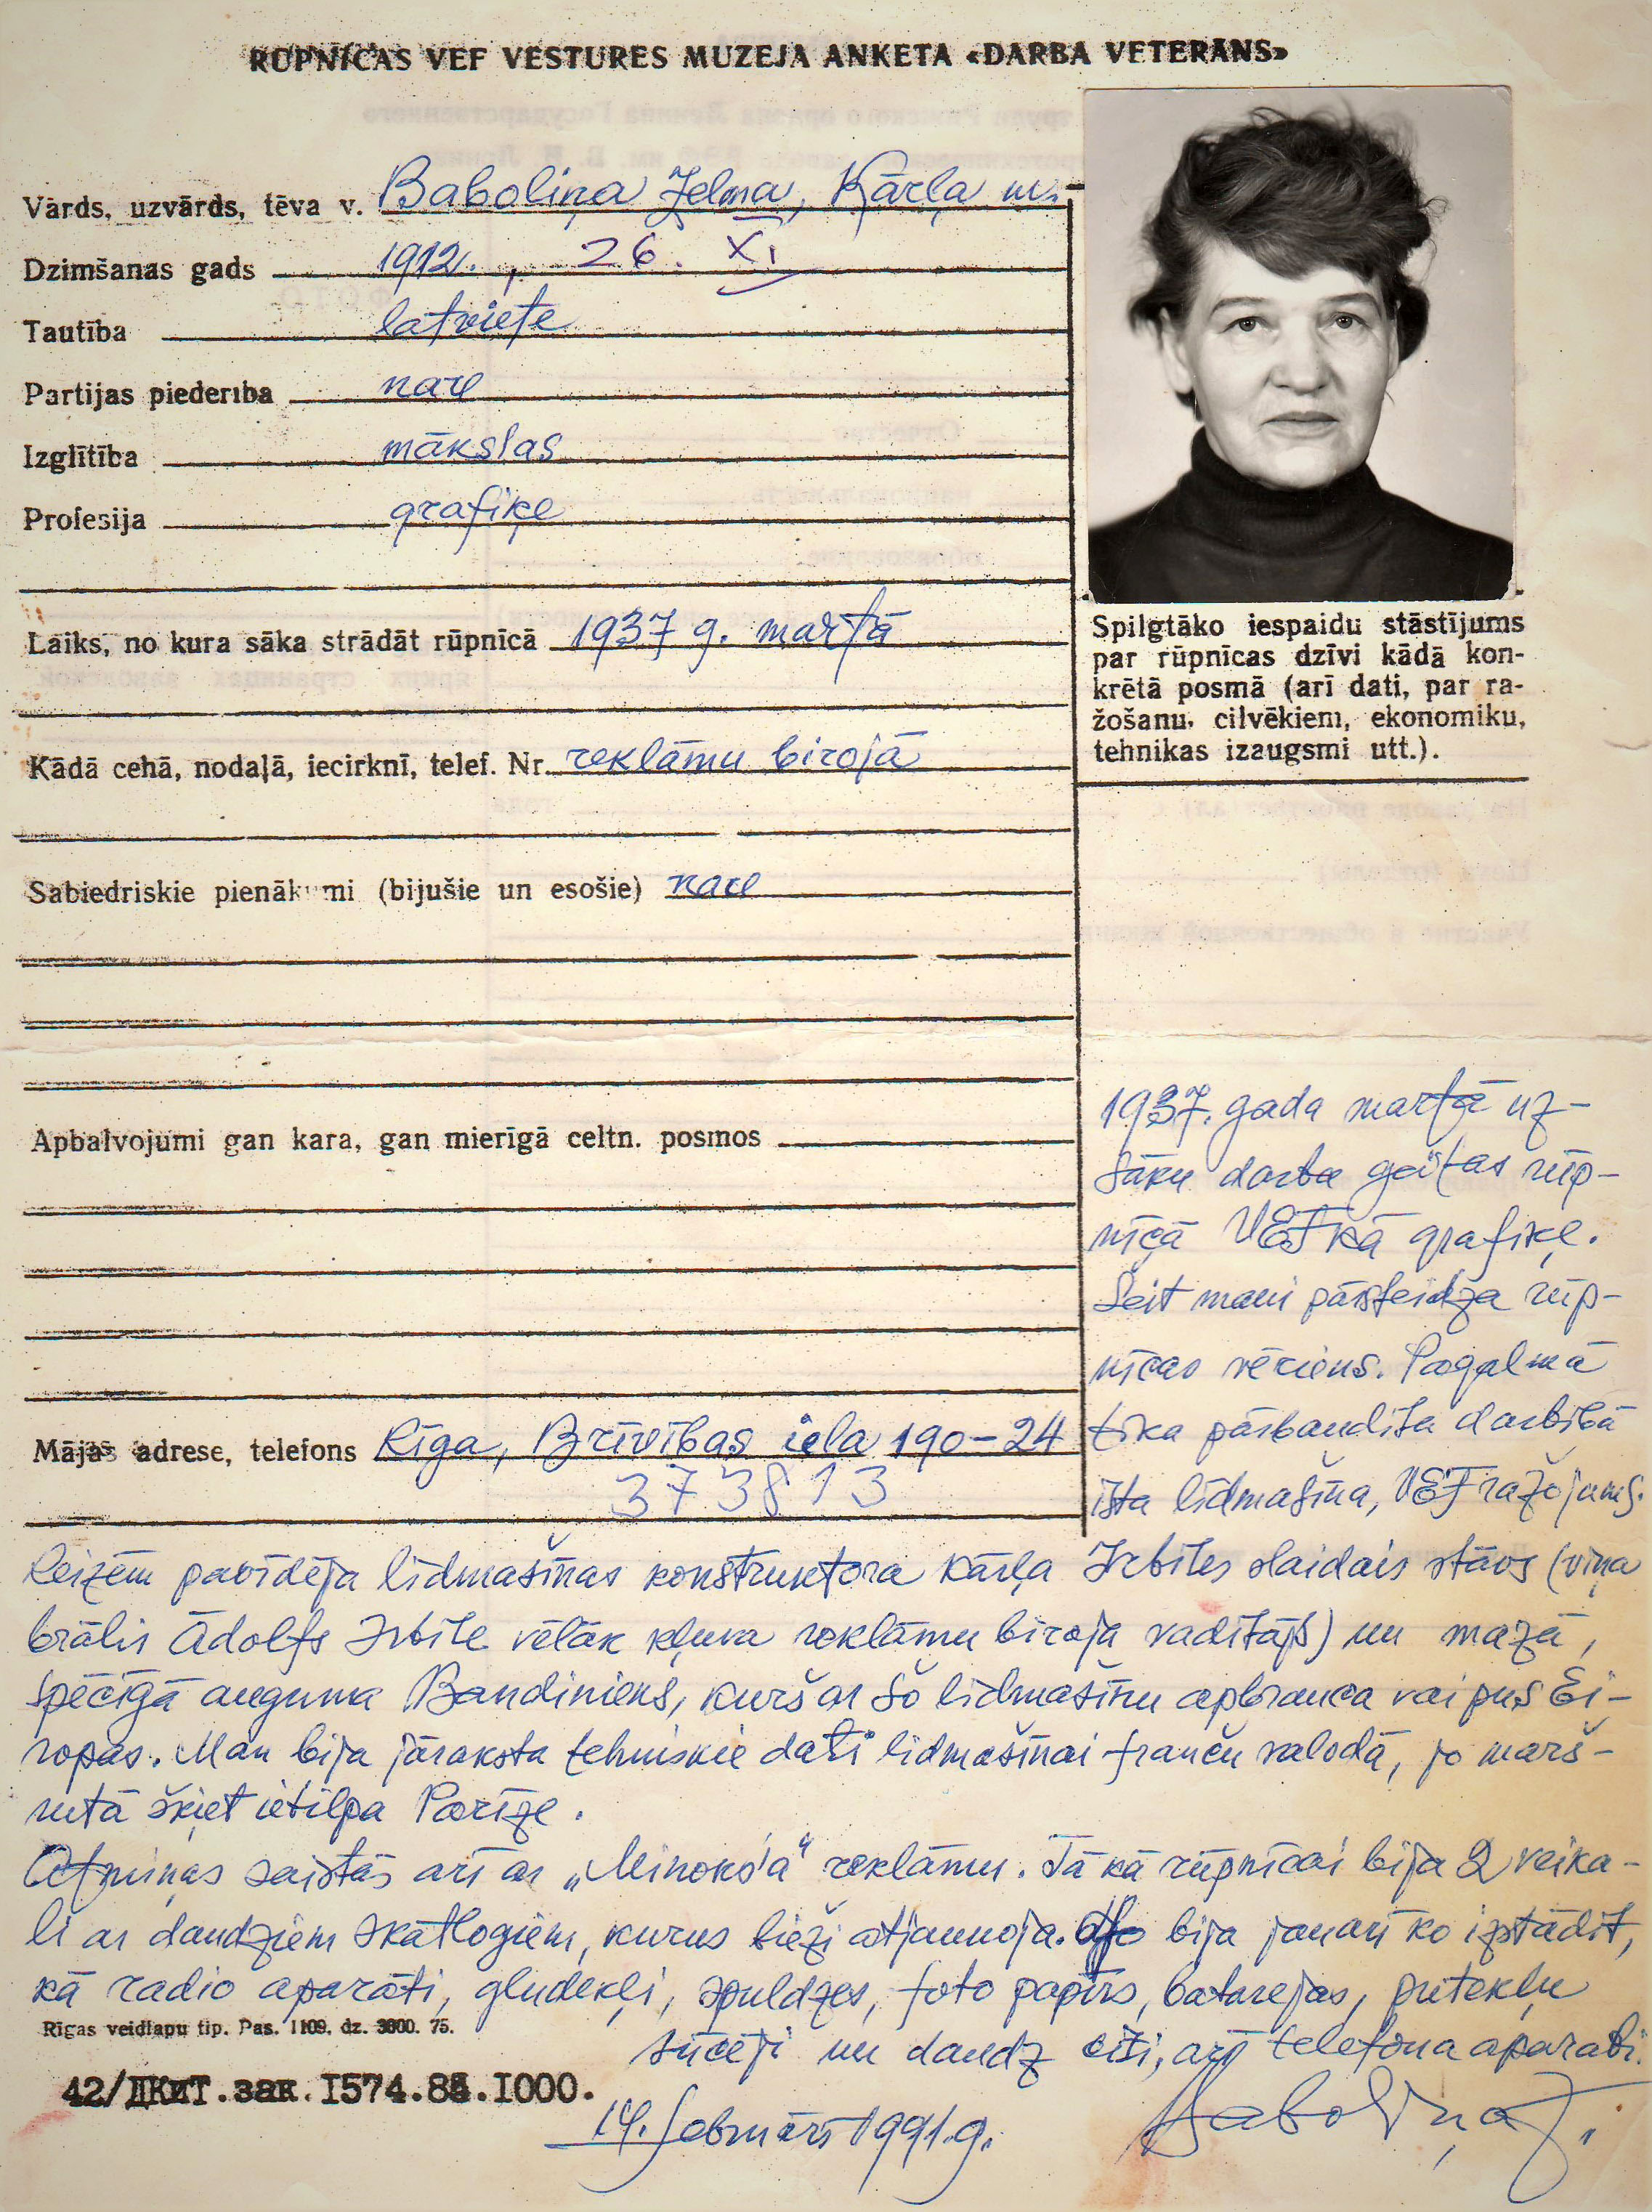 RŪPNĪCAS VEF VĒSTURES MUZEJA ANKETA «DARBA VETERĀNS»
Vārds, uzvārds, tēva v. Baboliņa Zelma, Kārļa m.
Dzimšanas gads 1912., 26. XI
Tautība latviete
Partijas piederība nav
Izglītība mākslas
Profesija grafiķe
Laiks, no kura sāka strādāt rūpnīcā 1937 g. martā
Kādā cehā, nodaļā, iecirknī, telef. Nr. reklāmu birojā
Sabiedriskie pienākumi (bijušie un esošie) nav
Apbalvojumi gan kara, gan mierīgā celtn. posmos
Mājas adrese, telefons Rīga, Brīvības iela 190-24
373813
Spilgtāko iespaidu stāstījums
par rūpnīcas dzīvi kādā kon-
krētā posmā (arī dati, par ra-
žošanu, cilvēkiem, ekonomiku,
tehnikas izaugsmi utt.).
1937. gada martā uz-
sāku darba gaitas rūp-
nīcā VEF kā grafiķe.
Šeit mani pārsteidza rūp-
nīcas vēriens. Pagalmā
tika pārbaudīta darbībā
īsta lidmašīna, VEF ražojums.
Reizēm pavīdēja lidmašīnas konstruktora Kārļa Irbītes slaidais stāvs (viņa
brālis Ādolfs Irbīte vēlāk kļuva reklāmu biroja vadītājs) un mazā,
spēcīgā auguma Bandinieks, kurš ar šo lidmašīnu apbrauca vai pus Ei-
ropas. Man bija jāraksta tehniskie dati lidmašīnai franču valodā, jo marš-
rutā šķiet ietilpa Parīze.
Atmiņas saistās arī ar „Minoks'a" reklāmu. Tā kā rūpnīcai bija 2 veika-
li ar daudziem skatlogiem, kurus bieži atjaunoja. bija jau arī ko izstādīt,
kā radio aparāti, gludekļi, spuldzes, foto papīrs, batarejas, putekļu
sūcēji un daudz citi, arī telefona aparati.
Rīgas veidlapu tip. Pas. 1109. dz. 3000. 75.
42/ДКиТ.зак.I574.85.I000.
14. februārī 1991.g.
Baboliņa Z.